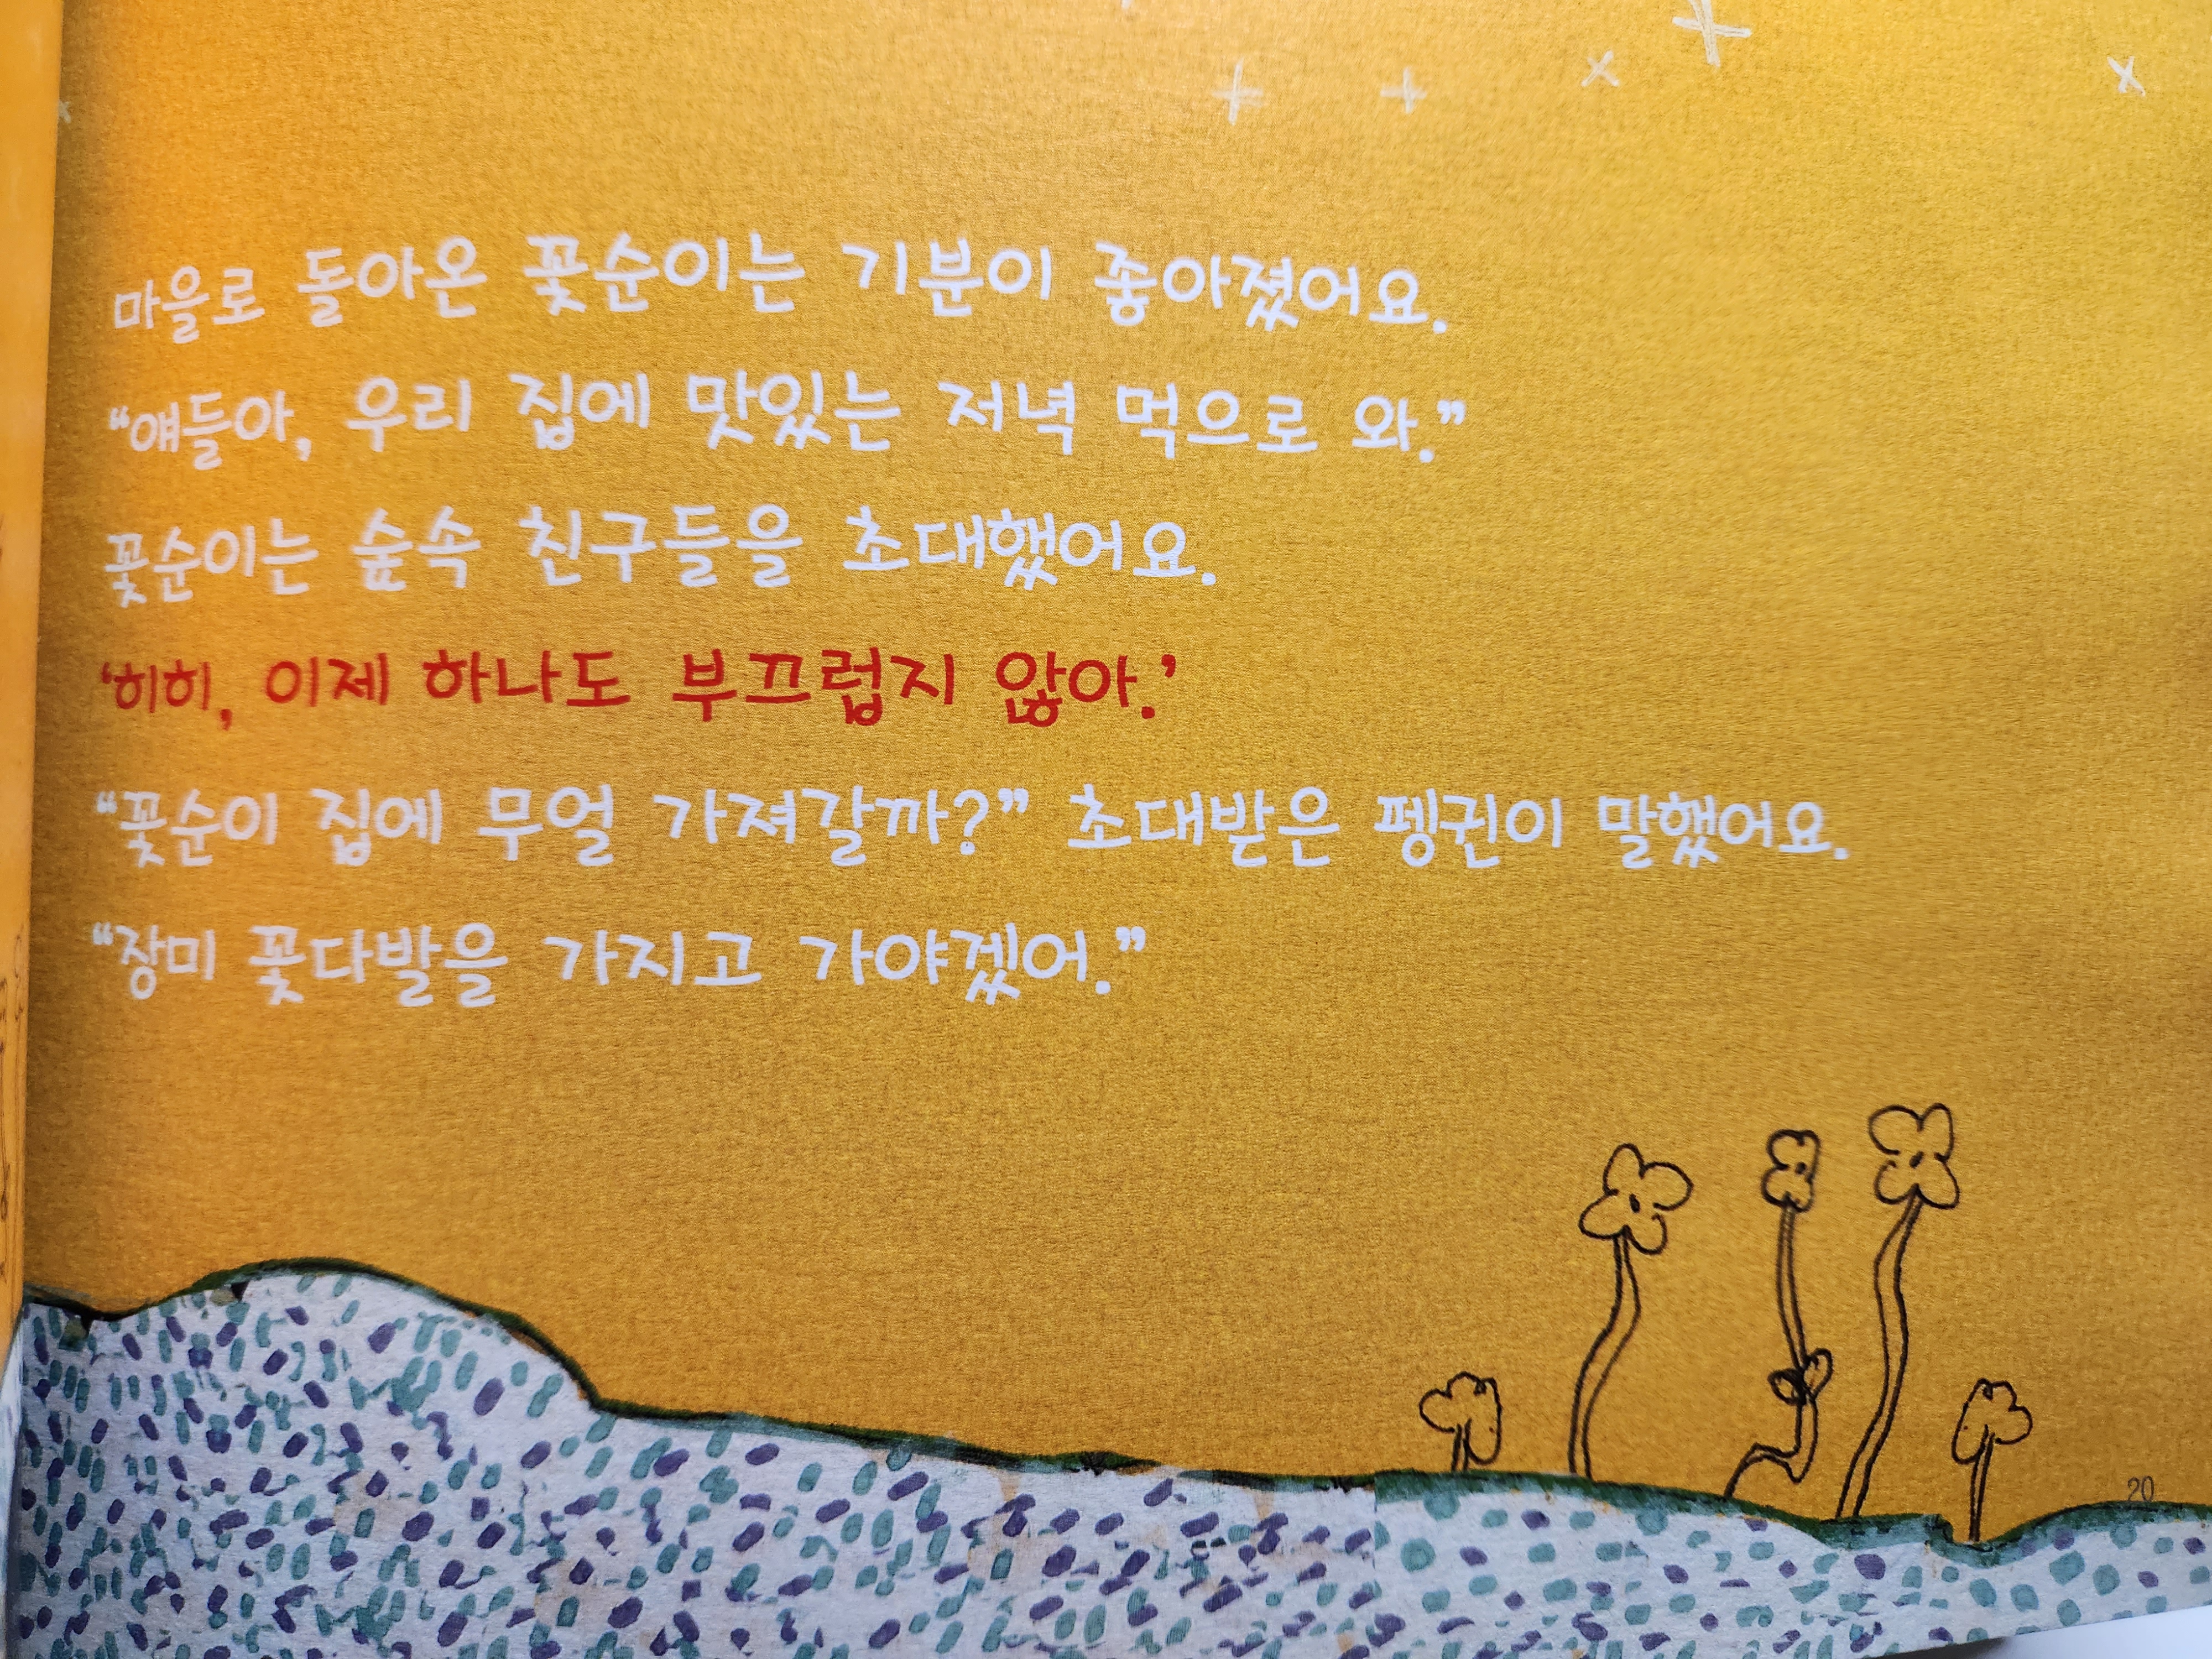 마을로 돌아온 꽃순이는 기분이 좋아졌어요.
“얘들아, 우리 집에 맛있는 저녁 먹으로 와.”
꽃순이는 숲속 친구들을 초대했어요.
‘히히, 이제 하나도 부끄럽지 않아.’
“꽃순이 집에 무얼 가져갈까?” 초대받은 펭귄이 말했어요.
“장미 꽃다발을 가지고 가야겠어.”
20